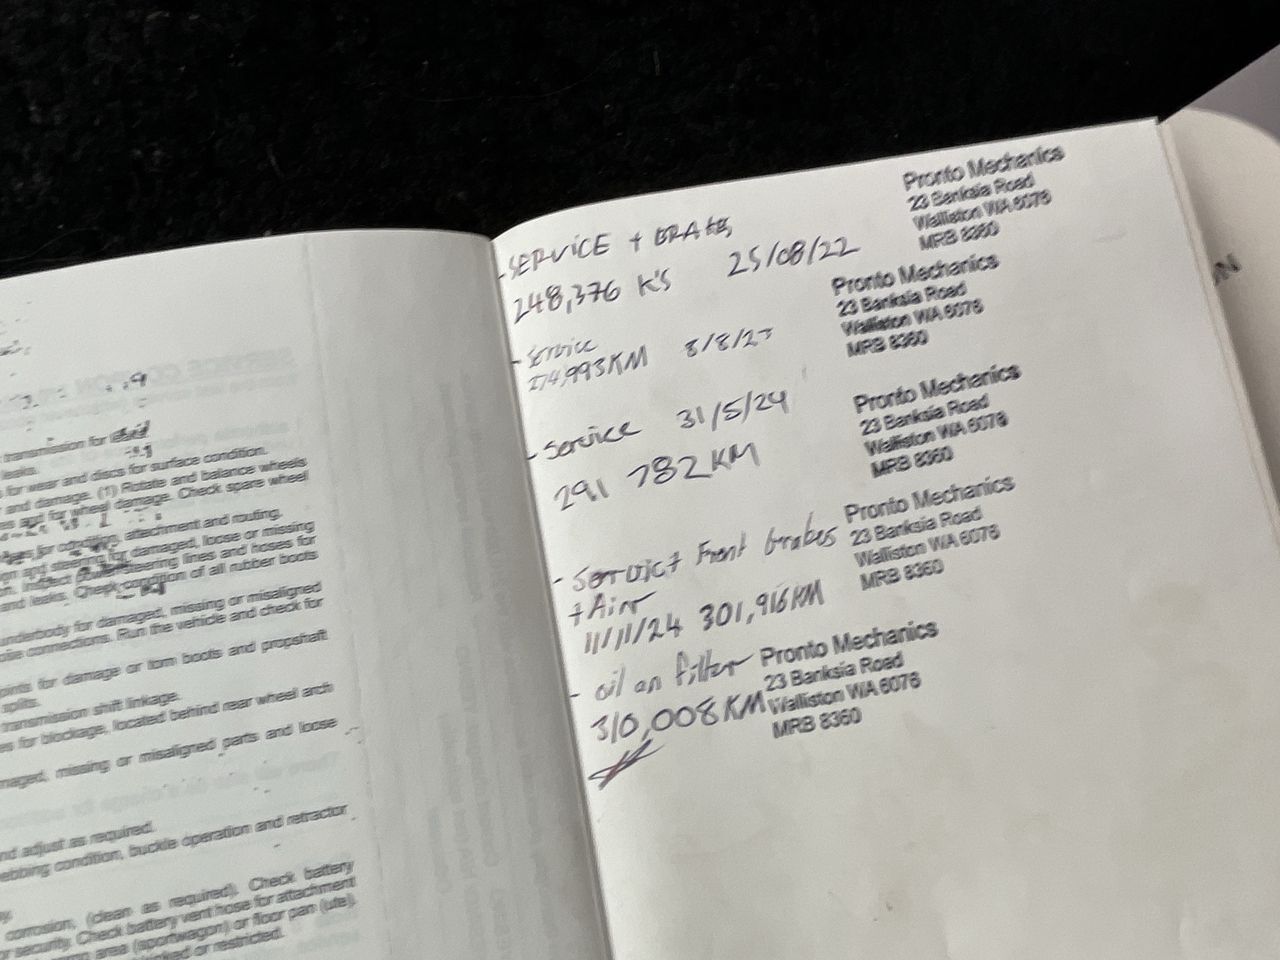 transmission for
leaks.
for wear and discs for surface condition.
and damage. (1) Rotate and balance wheels
and for wheel damage. Check spare wheel
for condition, attachment and routing.
and steering for damaged, loose or missing
Inspect steering lines and hoses for
and leaks. Check condition of all rubber boots
underbody for damaged, missing or misaligned
connections. Run the vehicle and check for
joints for damage or torn boots and propshaft
splits.
transmission shift linkage.
for blockage, located behind rear wheel arch
missing or misaligned parts and loose
and adjust as required.
webbing condition, buckle operation and retractor
corrosion, (clean as required). Check battery
or security. Check battery vent hose for attachment
area (sportwagon) or floor pan (ute).
blocked or restricted.
- SERVICE + BRAKES
248,376 K'S 25/08/22
Pronto Mechanics
23 Banksia Road
Walliston WA 6076
MRB 8360
- Service
274,993KM 8/8/23
Pronto Mechanics
23 Banksia Road
Walliston WA 6076
MRB 8360
- Service 31/5/24
291 782KM
Pronto Mechanics
23 Banksia Road
Walliston WA 6076
MRB 8360
- Service + Front brakes
+ Air
11/11/24 301,916KM
Pronto Mechanics
23 Banksia Road
Walliston WA 6076
MRB 8360
- oil an filter
310,008KM
Pronto Mechanics
23 Banksia Road
Walliston WA 6076
MRB 8360